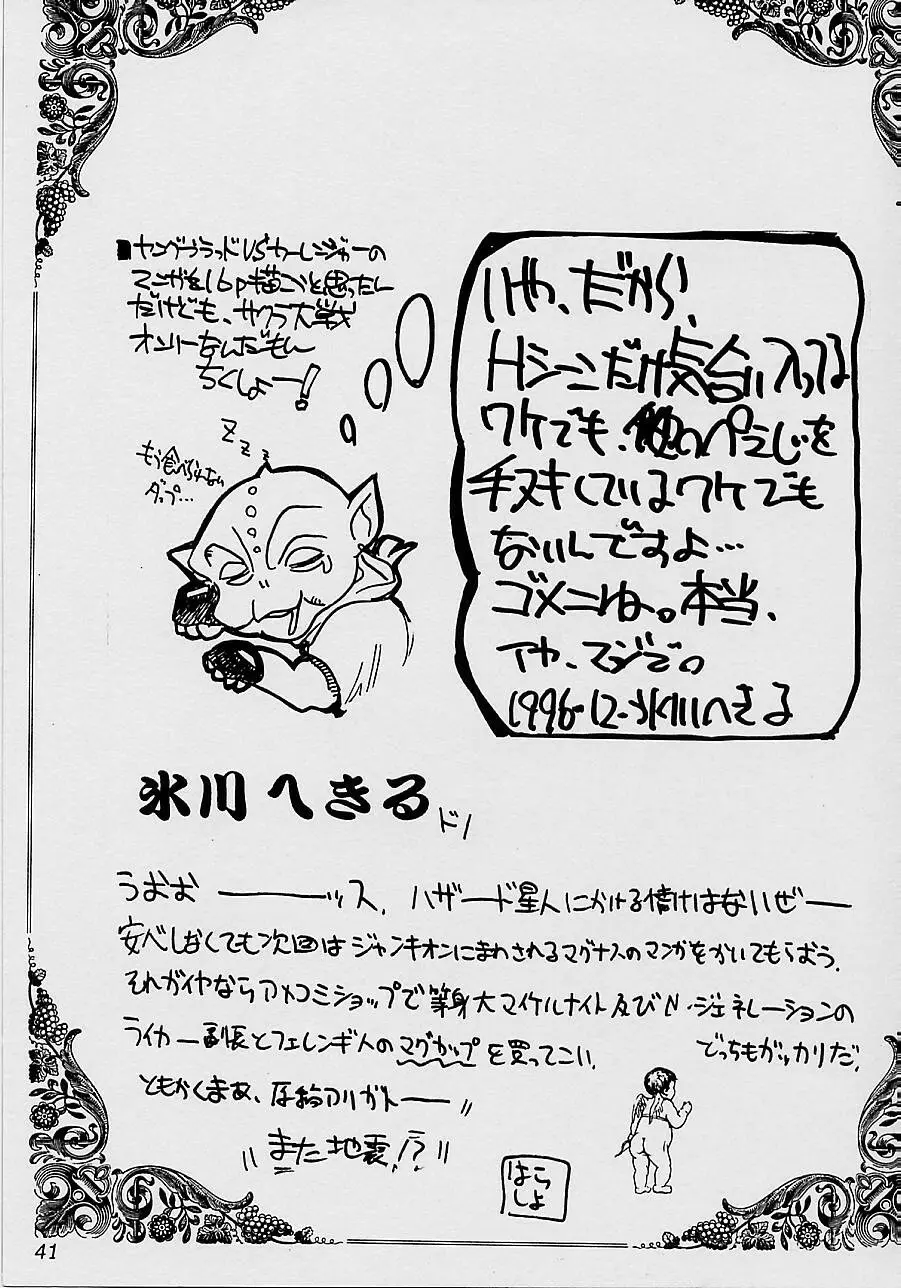 ■ヤングブラッドVSカーレンジャーの
マンガを16p描こうと思ったん
だけども、サクラ大戦
オンリーなんだもん
ちくしょー!
いや、だから、
Hシーンだけ気合い入ってる
ワケでも、他のぺえじを
手ヌキしているワケでも
ないんですよ…
ゴメンね。本当、
イヤ、マジで。
1996-12-氷川へきる
Z Z Z Z
もう食べられない
ダップ…
氷川へきる
ドノ
うおお――ッス、ハザード星人にかける情けはないぜ―
安心しなくても次回はジャンキオンにまわされるマグナスのマンガをかいてもらおう。
それがイヤならアメコミショップで等身大マイケルナイト及びN・ジェネレーションの
ライカー副長とフェレンギ人のマグカップを買ってこい。
でっちもガッカリだ。
ともかくまぁ、原稿アリガトー〃
〃また地震!?〃
はら
しょ
41